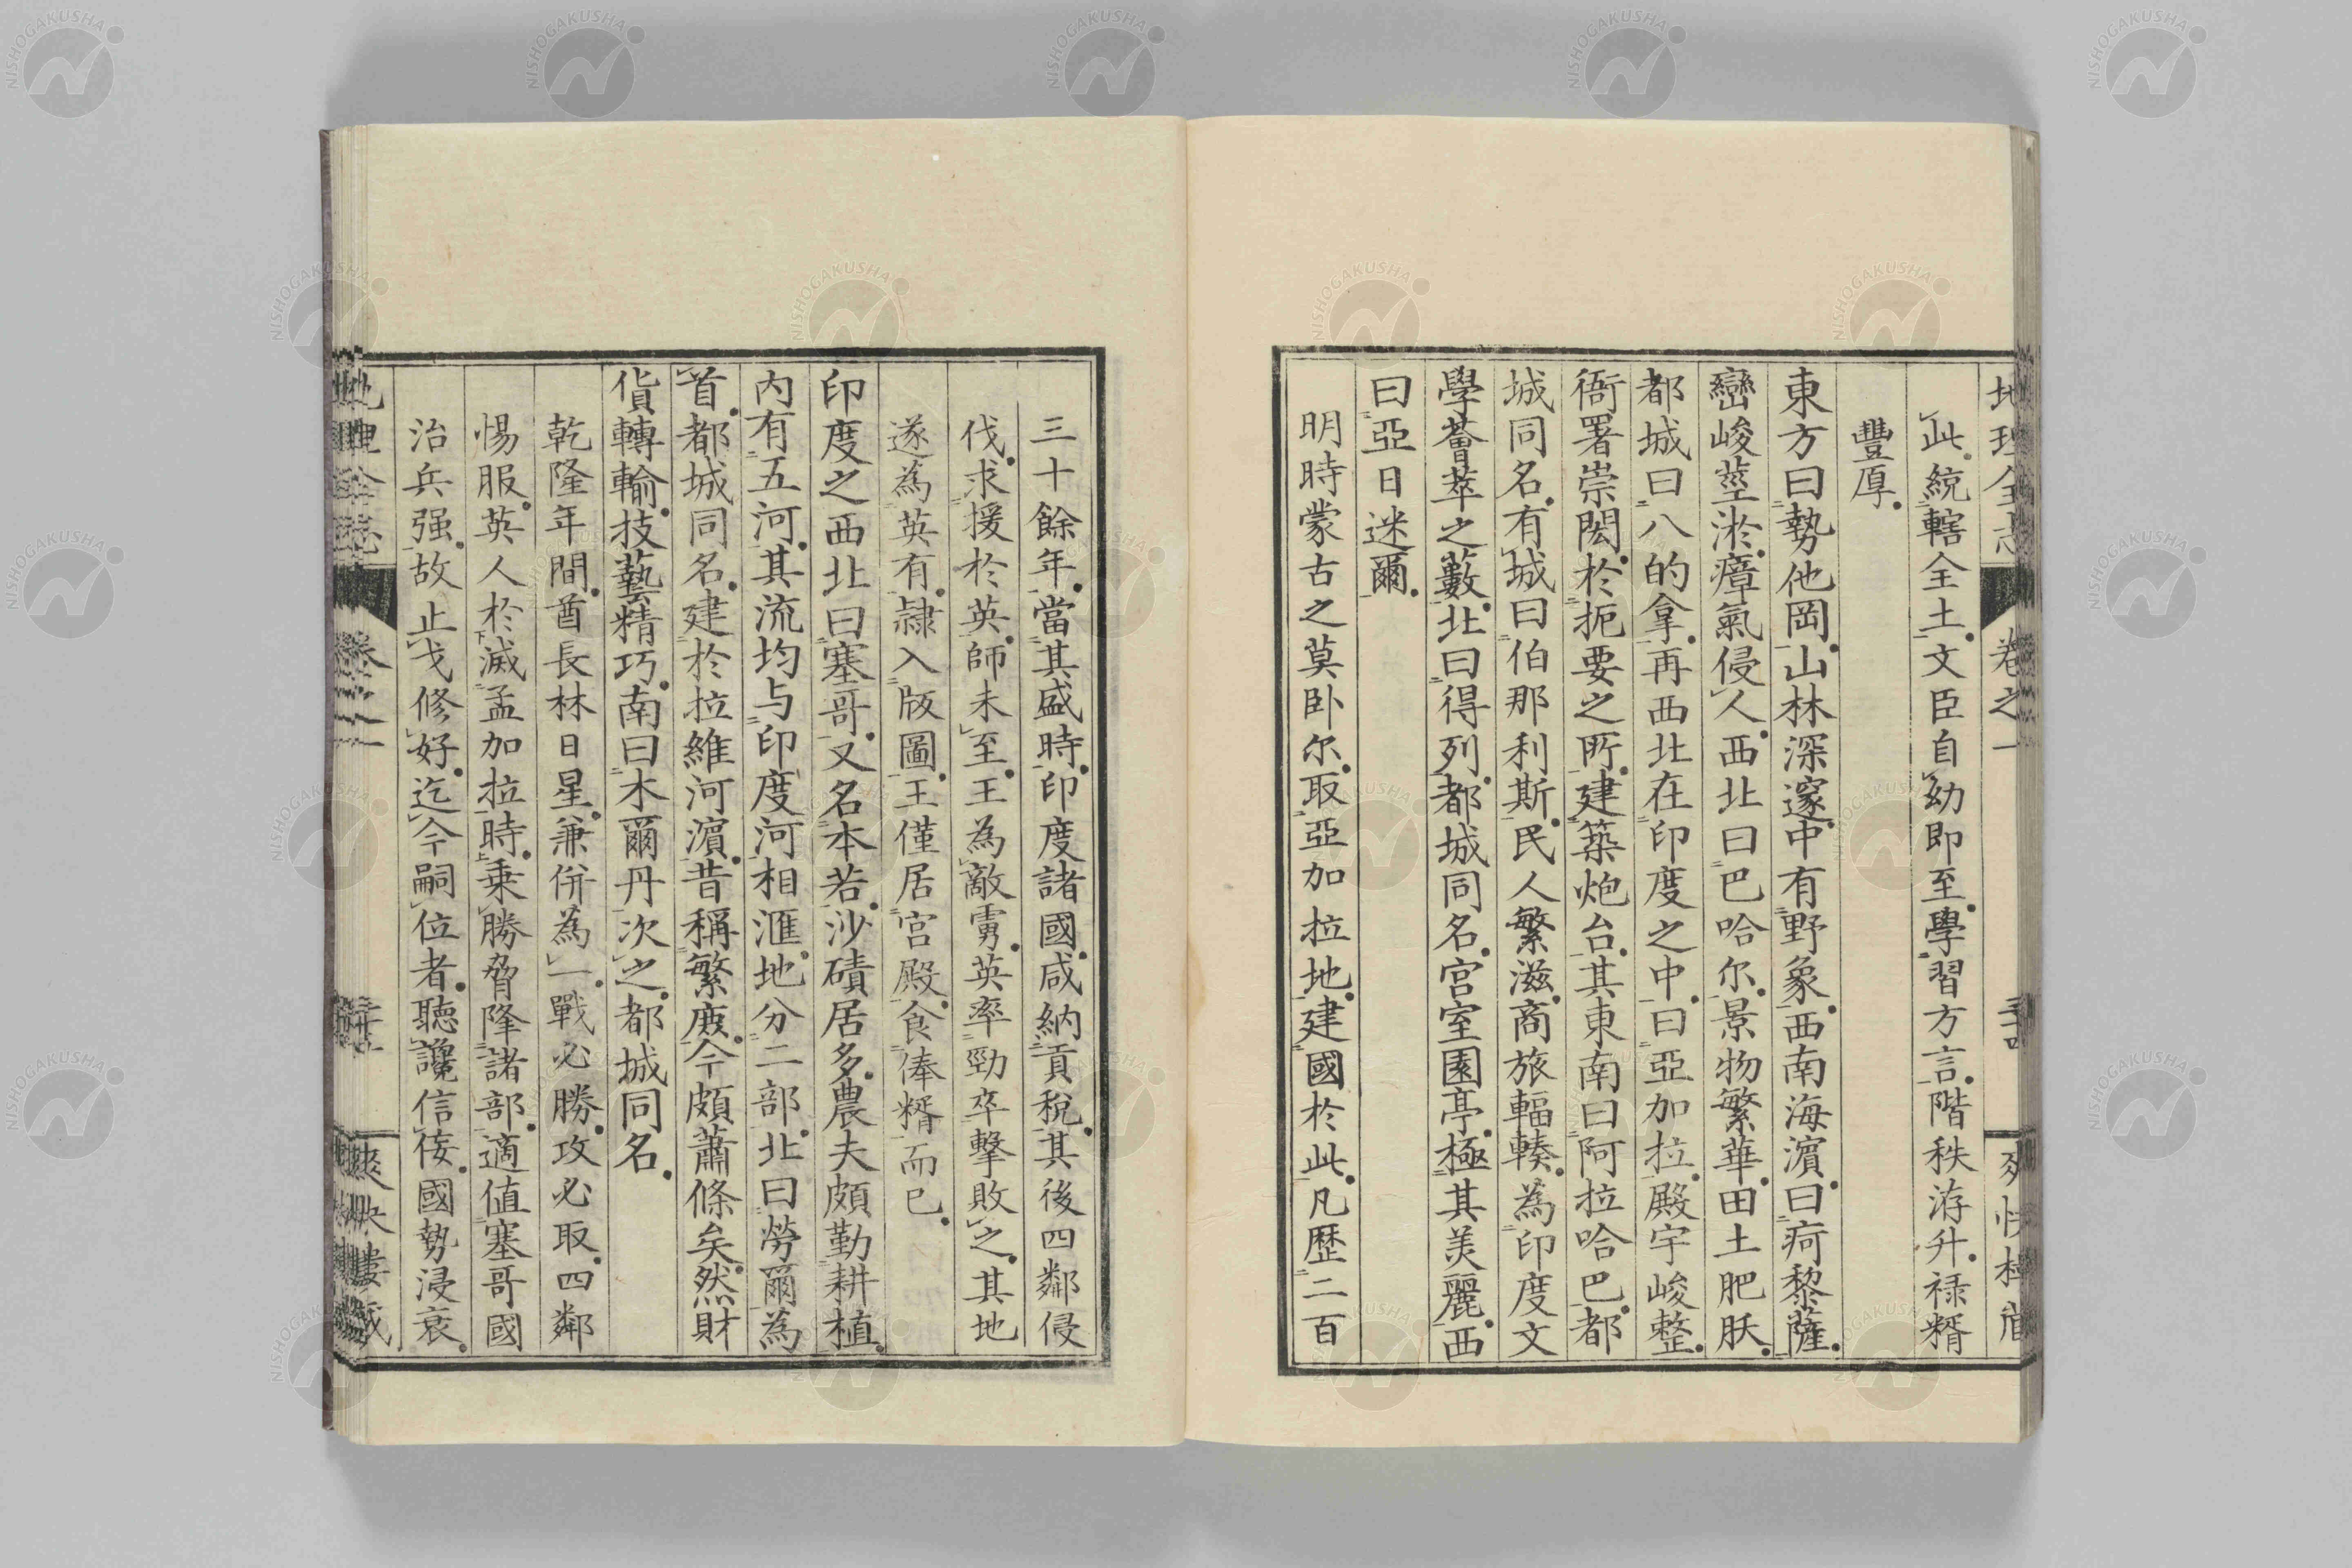 地理全志 卷之一
此統轄全土。文臣自幼即至學。習方言。階秩洊升。祿糈
豐厚。
東方曰勢他岡。山林深邃。中有野象。西南海濱。曰疴黎薩。
巒峻莝淤。瘴氣侵人。西北曰巴哈尔。景物繁華。田土肥沃。
都城曰八的拿。再西北在印度之中。曰亞加拉。殿宇峻整。
衙署崇閎。於扼要之所。建築炮台。其東南曰阿拉哈巴。都
城同名。有城曰伯那利斯。民人繁滋。商旅輻輳。為印度文
學薈萃之藪。北曰得列。都城同名。宮室園亭。極其美麗。西
曰亞日迷爾。
明時蒙古之莫臥尔。取亞加拉地。建國於此。凡歷二百
三十餘年。當其盛時。印度諸國。咸納貢稅。其後四鄰侵
伐。求援於英。師未至。王為敵虜。英率勁卒擊敗之。其地
遂為英有。隷入版圖。王僅居宮殿。食俸糈而已。
印度之西北曰塞哥。又名本若。沙磧居多。農夫頗勤耕植。
內有五河。其流均与印度河相滙。地分二部。北曰勞爾為
首。都城同名。建於拉維河濱。昔稱繁庶。今頗蕭條矣。然財
貨轉輸。技藝精巧。南曰木爾丹次之。都城同名。
乾隆年間。酋長林日星。兼併為一。戰必勝。攻必取。四鄰
惕服。英人於滅孟加拉時。乘勝脅降諸部。適值塞哥國
治兵强。故止戈修好。迄今嗣位者。聽讒信佞。國勢浸衰。